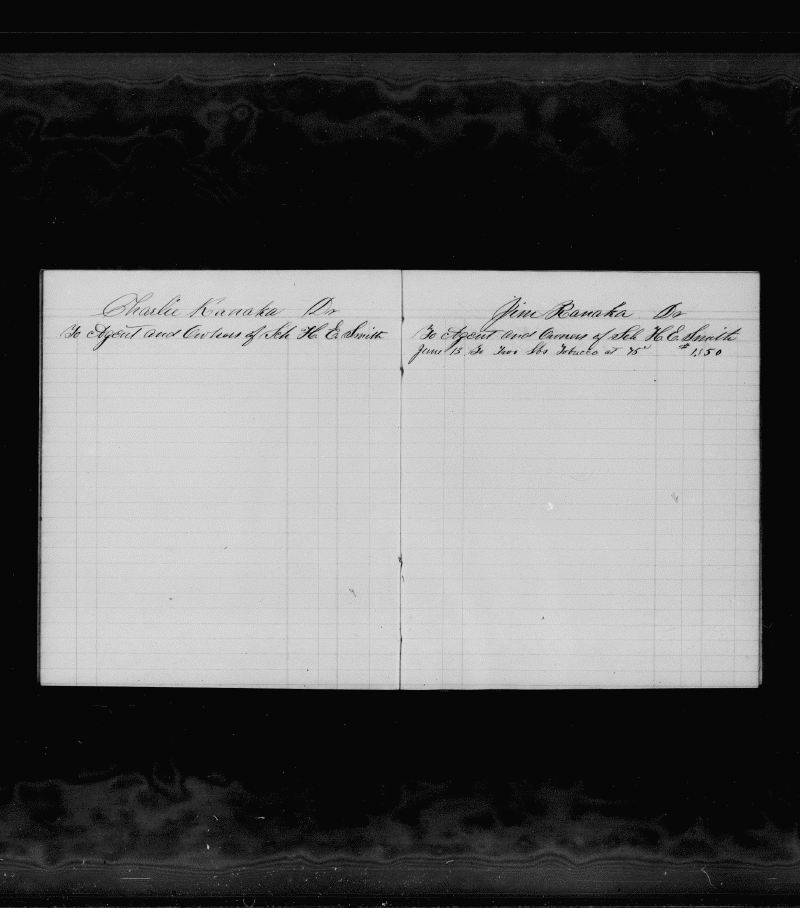 Charlie Kanaka Dr
To Agent and Owners of Sch H. E. Smith
Jim Kanaka Dr
To Agent and Owners of Sch H. E. Smith
June 15 To Two lbs Tobacco at 75¢ $1.50